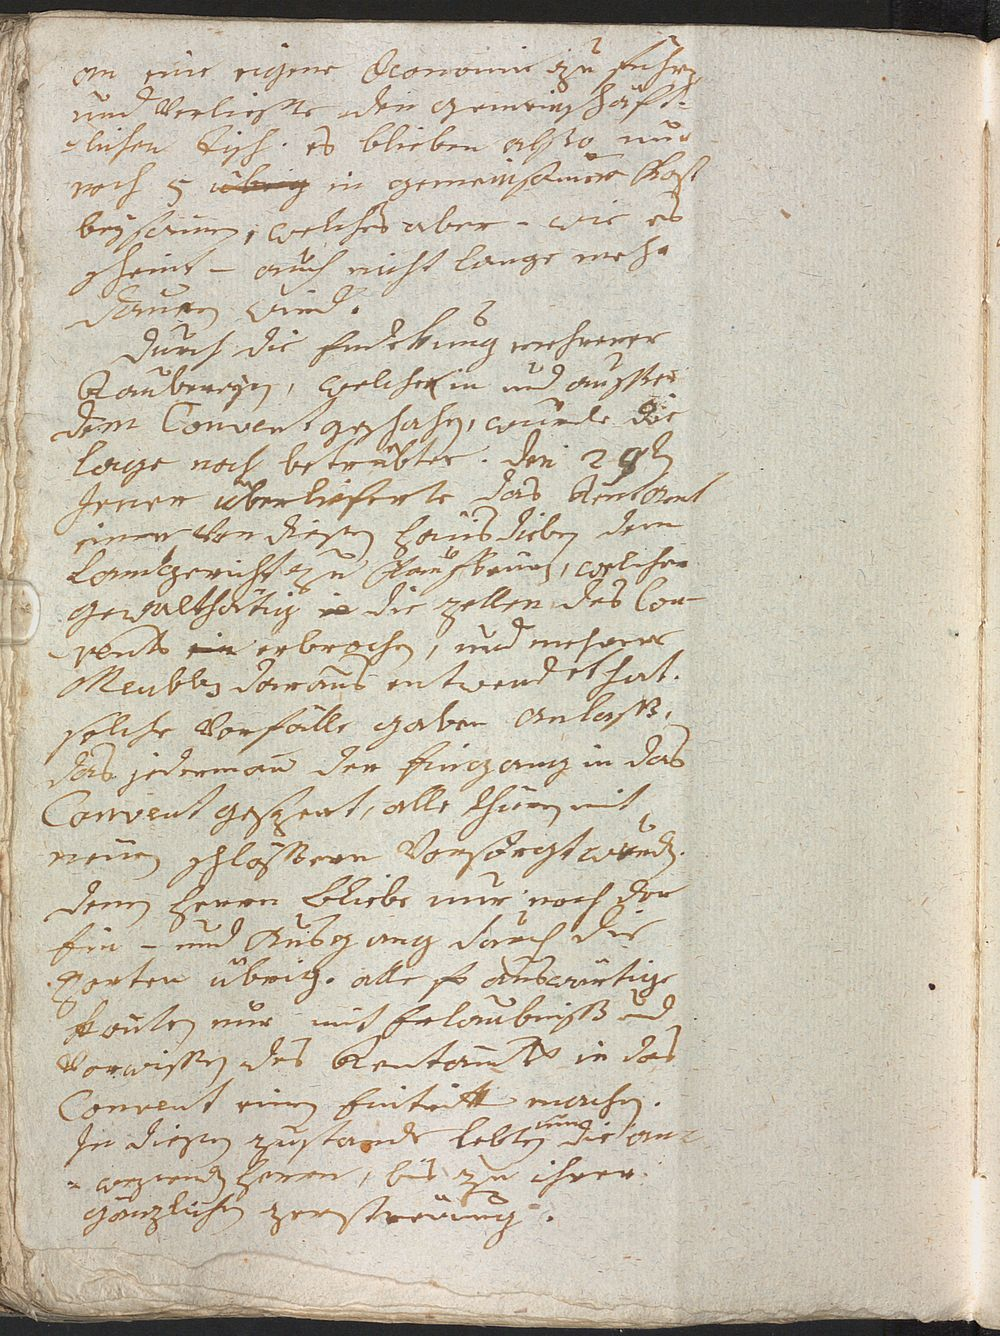 an eine eigene Œconomie zu führen,
und verließe den gemeinschäft-
-lichen Tisch. es blieben also nur
noch 5 übrig in gemeinsamer Kost
beysamen, welches aber - wie es
scheint - auch nicht lange mehr
dauern wird.
Durch die Endekung mehrerer
Raubereyen, welche in und ausser
dem Convent geschahen, wurde die
lage noch betrübter. den 29ten
Jener überlieferte das Rentamt
einen von diesen Hausdieben dem
Landgerichte zu Kaufbeuren, welcher
gewalthätig in die zellen des Con-
vents ein erbrochen, und mehrere
Meubles daraus entwendet hat.
solche Vorfälle gaben anlaß,
das jederman der Eingang in das
Convent gesperrt, alle thüren mit
neuen schlössern Versorgt wurden.
denen Herrn bliebe nur noch der
Ein - und Ausgang durch die
Porten übrig. alle auswärtige
konten nur mit Erlaubniß und
Vorwissen des Rentamts in das
Convent einen Eintritt machen.
In diesen zustande lebten nun die an-
-wesenden Herren, bis zu ihrer
gänzlichen zerstreuung.